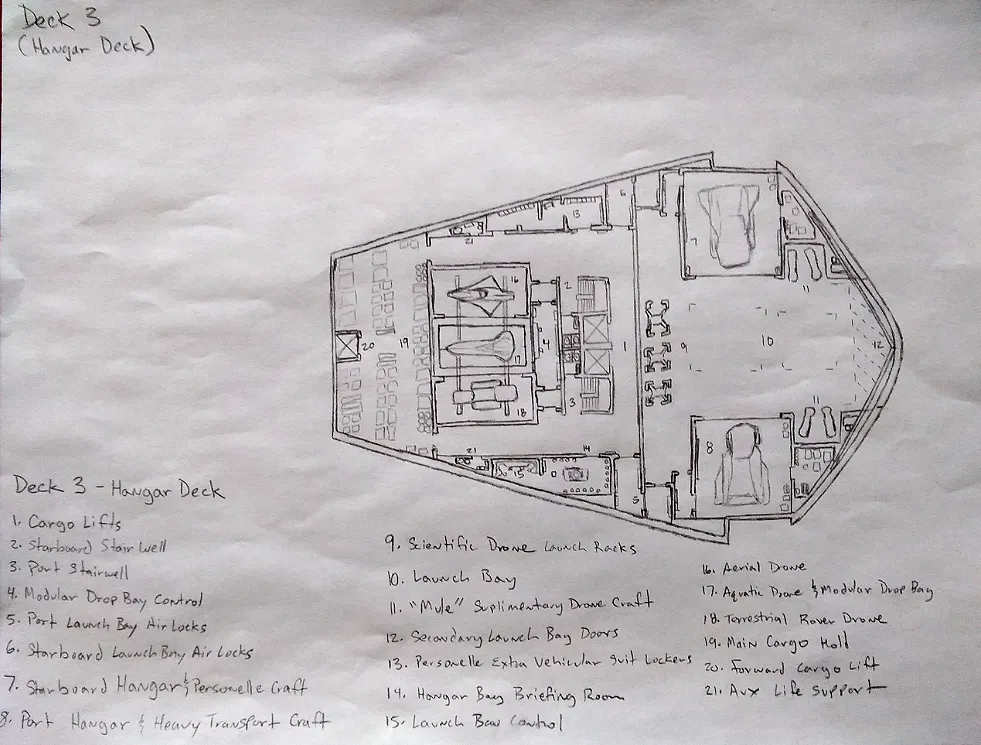 Deck 3
(Hangar Deck)
6
13
21
7
11
16
2
20
19
17
4
1
9
10
12
18
3
11
8
21
15
14
5
Deck 3 - Hangar Deck
1. Cargo Lifts
2. Starboard Stair Well
3. Port Stairwell
4. Modular Drop Bay Control
5. Port Launch Bay Air Locks
6. Starboard Launch Bay Air Locks
7. Starboard Hangar & Personelle Craft
8. Port Hangar & Heavy Transport Craft
9. Scientific Drone Launch Racks
10. Launch Bay
11. "Mule" Suplimentary Drone Craft
12. Secondary Launch Bay Doors
13. Personelle Extra Vehicular Suit Lockers
14. Hangar Bay Briefing Room
15. Launch Bay Control
16. Aerial Drone
17. Aquatic Drone & Modular Drop Bay
18. Terrestrial Rover Drone
19. Main Cargo Hold
20. Forward Cargo Lift
21. Aux Life Support